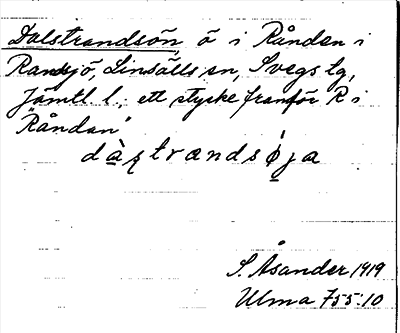 Dalstrandsön, ö i Rånden i
Randsjö, Linsälls sn, Svegs tg,
Jämtl. l., ett stycke framför R i
"Råndan"
dàʂtrændsø̀ja
S. Åsander 1919
Ulma 755:10